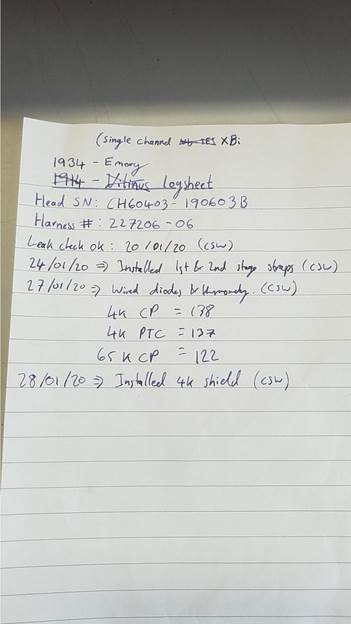 (Single channel IES XBi
1934 - Emory
1914 - Litinus Logsheet
Head SN: CH60403-190603B
Harness #: 227206-06
Leak check ok: 20/01/20 (CSW)
24/01/20 => Installed 1st & 2nd stage straps (CSW)
27/01/20 => Wired diodes & (CSW)
4K CP = 138
4K PTC = 137
65K CP = 122
28/01/20 => Installed 4K shield (CSW)